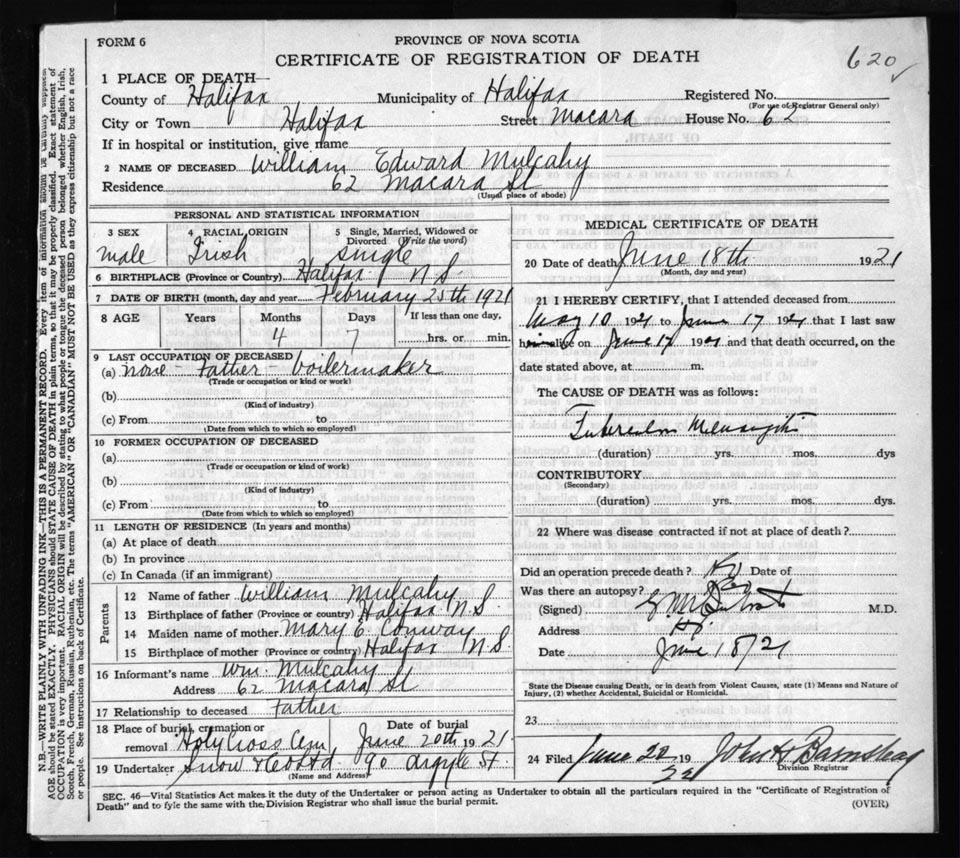 FORM 6
PROVINCE OF NOVA SCOTIA
620 ✓
CERTIFICATE OF REGISTRATION OF DEATH
1 PLACE OF DEATH—
County of Halifax Municipality of Halifax Registered No.
(For use of Registrar General only)
City or Town Halifax Street Macara House No. 62
If in hospital or institution, give name
2 NAME OF DECEASED William Edward Mulcahy
Residence 62 Macara St
(Usual place of abode)
PERSONAL AND STATISTICAL INFORMATION
3 SEX 4 RACIAL ORIGIN 5 Single, Married, Widowed or Divorced (Write the word)
male Irish single
6 BIRTHPLACE (Province or Country) Halifax N.S.
7 DATE OF BIRTH (month, day and year February 25th 1921
8 AGE Years Months Days If less than one day,
4 7 hrs. or min.
9 LAST OCCUPATION OF DECEASED
(a) none - Father - boilermaker
(Trade or occupation or kind or work)
(b)
(Kind of industry)
(c) From to
(Date from which to which so employed)
10 FORMER OCCUPATION OF DECEASED
(a)
(Trade or occupation or kind of work)
(b)
(Kind of industry)
(c) From to
(Date from which to which so employed)
11 LENGTH OF RESIDENCE (In years and months)
(a) At place of death
(b) In province
(c) In Canada (if an immigrant)
Parents
12 Name of father William Mulcahy
13 Birthplace of father (Province or country) Halifax N.S.
14 Maiden name of mother Mary E. Conway
15 Birthplace of mother (Province or country) Halifax N.S.
16 Informant's name Wm. Mulcahy
Address 62 Macara St
17 Relationship to deceased Father
18 Place of burial, cremation or removal Holy Cross Cem Date of burial June 20th 1921
19 Undertaker Snow & Co Ltd. 90 Argyle St.
(Name and Address)
MEDICAL CERTIFICATE OF DEATH
20 Date of death June 18th 1921
(Month, day and year)
21 I HEREBY CERTIFY, that I attended deceased from
May 10 1921 to June 17 1921 that I last saw
h alive on June 17 1921 and that death occurred, on the
date stated above, at m.
The CAUSE OF DEATH was as follows:
Tubercular Meningitis
(duration) yrs. mos. dys
CONTRIBUTORY
(Secondary)
(duration) yrs. mos. dys.
22 Where was disease contracted if not at place of death?
Did an operation precede death? No Date of
Was there an autopsy? No
(Signed) M.D.
Address Hx
Date June 18/21
State the Disease causing Death, or in death from Violent Causes, state (1) Means and Nature of
Injury, (2) whether Accidental, Suicidal or Homicidal.
23
24 Filed June 20 19
John H Barnstead
Division Registrar
SEC. 46—Vital Statistics Act makes it the duty of the Undertaker or person acting as Undertaker to obtain all the particulars required in the "Certificate of Registration of
Death" and to fyle the same with the Division Registrar who shall issue the burial permit.
(OVER)
N.B.—WRITE PLAINLY WITH UNFADING INK—THIS IS A PERMANENT RECORD. Every item of information should be carefully supplied.
AGE should be stated EXACTLY. PHYSICIANS should STATE CAUSE OF DEATH in plain terms, so that it may be properly classified. Exact statement of
OCCUPATION is very important. RACIAL ORIGIN will be described by stating to what people or tongue the deceased person belonged whether English, Irish,
Scotch, French, German, Russian, Ruthenian, etc. The terms "AMERICAN" OR "CANADIAN" MUST NOT BE USED as they express citizenship but not a race
or people. See instructions on back of Certificate.